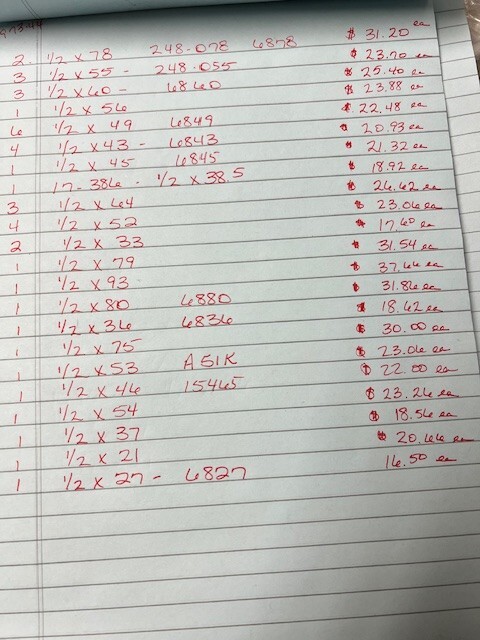 2. 1/2 x 78 248-078 6878 $ 31.20 ea
3 1/2 x 55 248-055 $ 23.70 ea
3 1/2 x 60 - 6860 $ 25.40 ea
1 1/2 x 56 $ 23.88 ea
6 1/2 x 49 6849 $ 22.48 ea
4 1/2 x 43 - 6843 $ 20.93 ea
1 1/2 x 45 6845 $ 21.32 ea
1 17-386 - 1/2 x 38.5 $ 18.92 ea
3 1/2 x 64 $ 26.62 ea
4 1/2 x 52 $ 23.06 ea
2 1/2 x 33 $ 17.60 ea
1 1/2 x 79 $ 31.54 ea
1 1/2 x 93 $ 37.66 ea
1 1/2 x 80 6880 $ 31.86 ea
1 1/2 x 36 6836 $ 18.62 ea
1 1/2 x 75 $ 30.00 ea
1 1/2 x 53 A51K $ 23.06 ea
1 1/2 x 46 15465 $ 22.00 ea
1 1/2 x 54 $ 23.26 ea
1 1/2 x 37 $ 18.56 ea
1 1/2 x 21 $ 20.66 ea
1 1/2 x 27 - 6827 16.50 ea